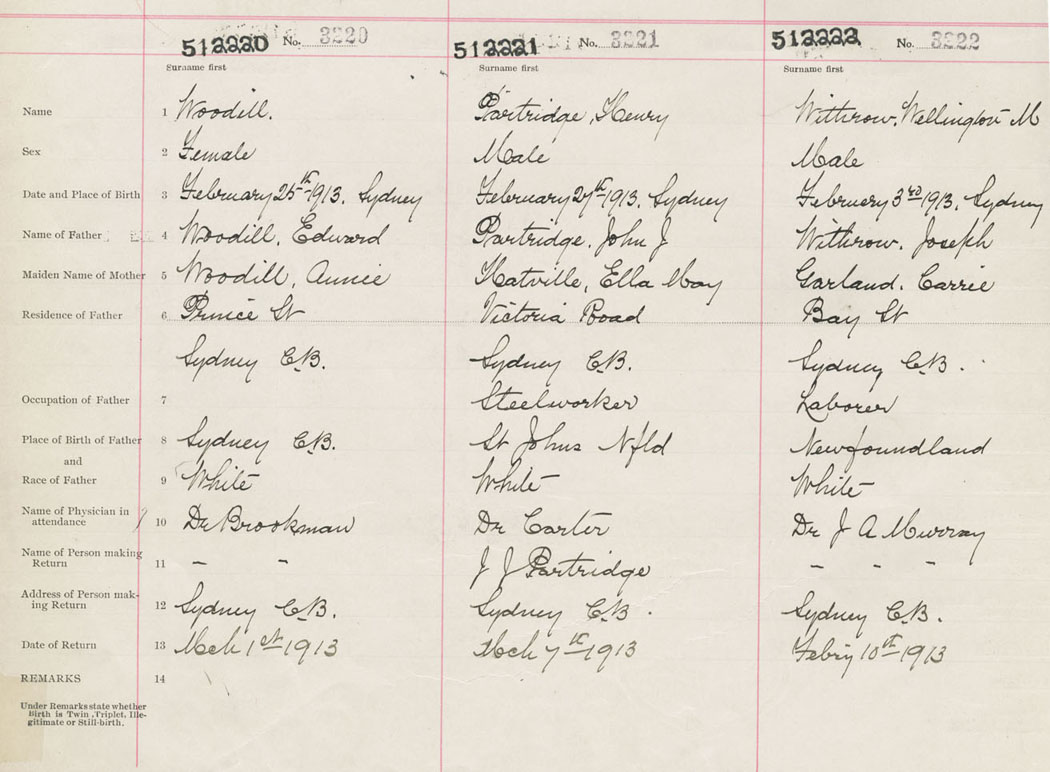 512220 No. 3220 512221 No. 3221 512222 No. 3222
Surname first Surname first Surname first
Name 1 Woodill. Partridge, Henry Withrow, Wellington M
Sex 2 Female Male Male
Date and Place of Birth 3 February 25th 1913. Sydney February 27th 1913. Sydney February 3rd 1913. Sydney
Name of Father 4 Woodill, Edward Partridge, John J Withrow. Joseph
Maiden Name of Mother 5 Woodill, Annie Hatville, Ella May Garland. Carrie
Residence of Father 6 Prince St Victoria Road Bay St
Sydney C.B. Sydney C.B. Sydney C.B.
Occupation of Father 7 Steelworker Laborer
Place of Birth of Father 8 Sydney C.B. St Johns Nfld Newfoundland
and
Race of Father 9 White White White
Name of Physician in
attendance 10 Dr Brookman Dr Carter Dr J A Murray
Name of Person making
Return 11 - - J J Partridge - - -
Address of Person mak-
ing Return 12 Sydney C.B. Sydney C.B. Sydney C.B.
Date of Return 13 Mch 1st 1913 Mch 7th 1913 Febry 10th 1913
REMARKS 14
Under Remarks state whether
Birth is Twin, Triplet, Ille-
gitimate or Still-birth.